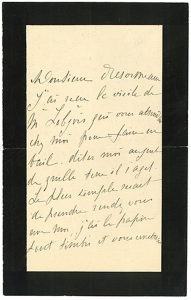 Monsieur Desormeau
J'ai reçu la visite de
Mr qui vous
chez moi pour faire un
bail. dites moi
de quelle terre il s'agit.
Le plus simple serait
de prendre rendez vous
avec moi, j'ai le papier
tout timbré et vous